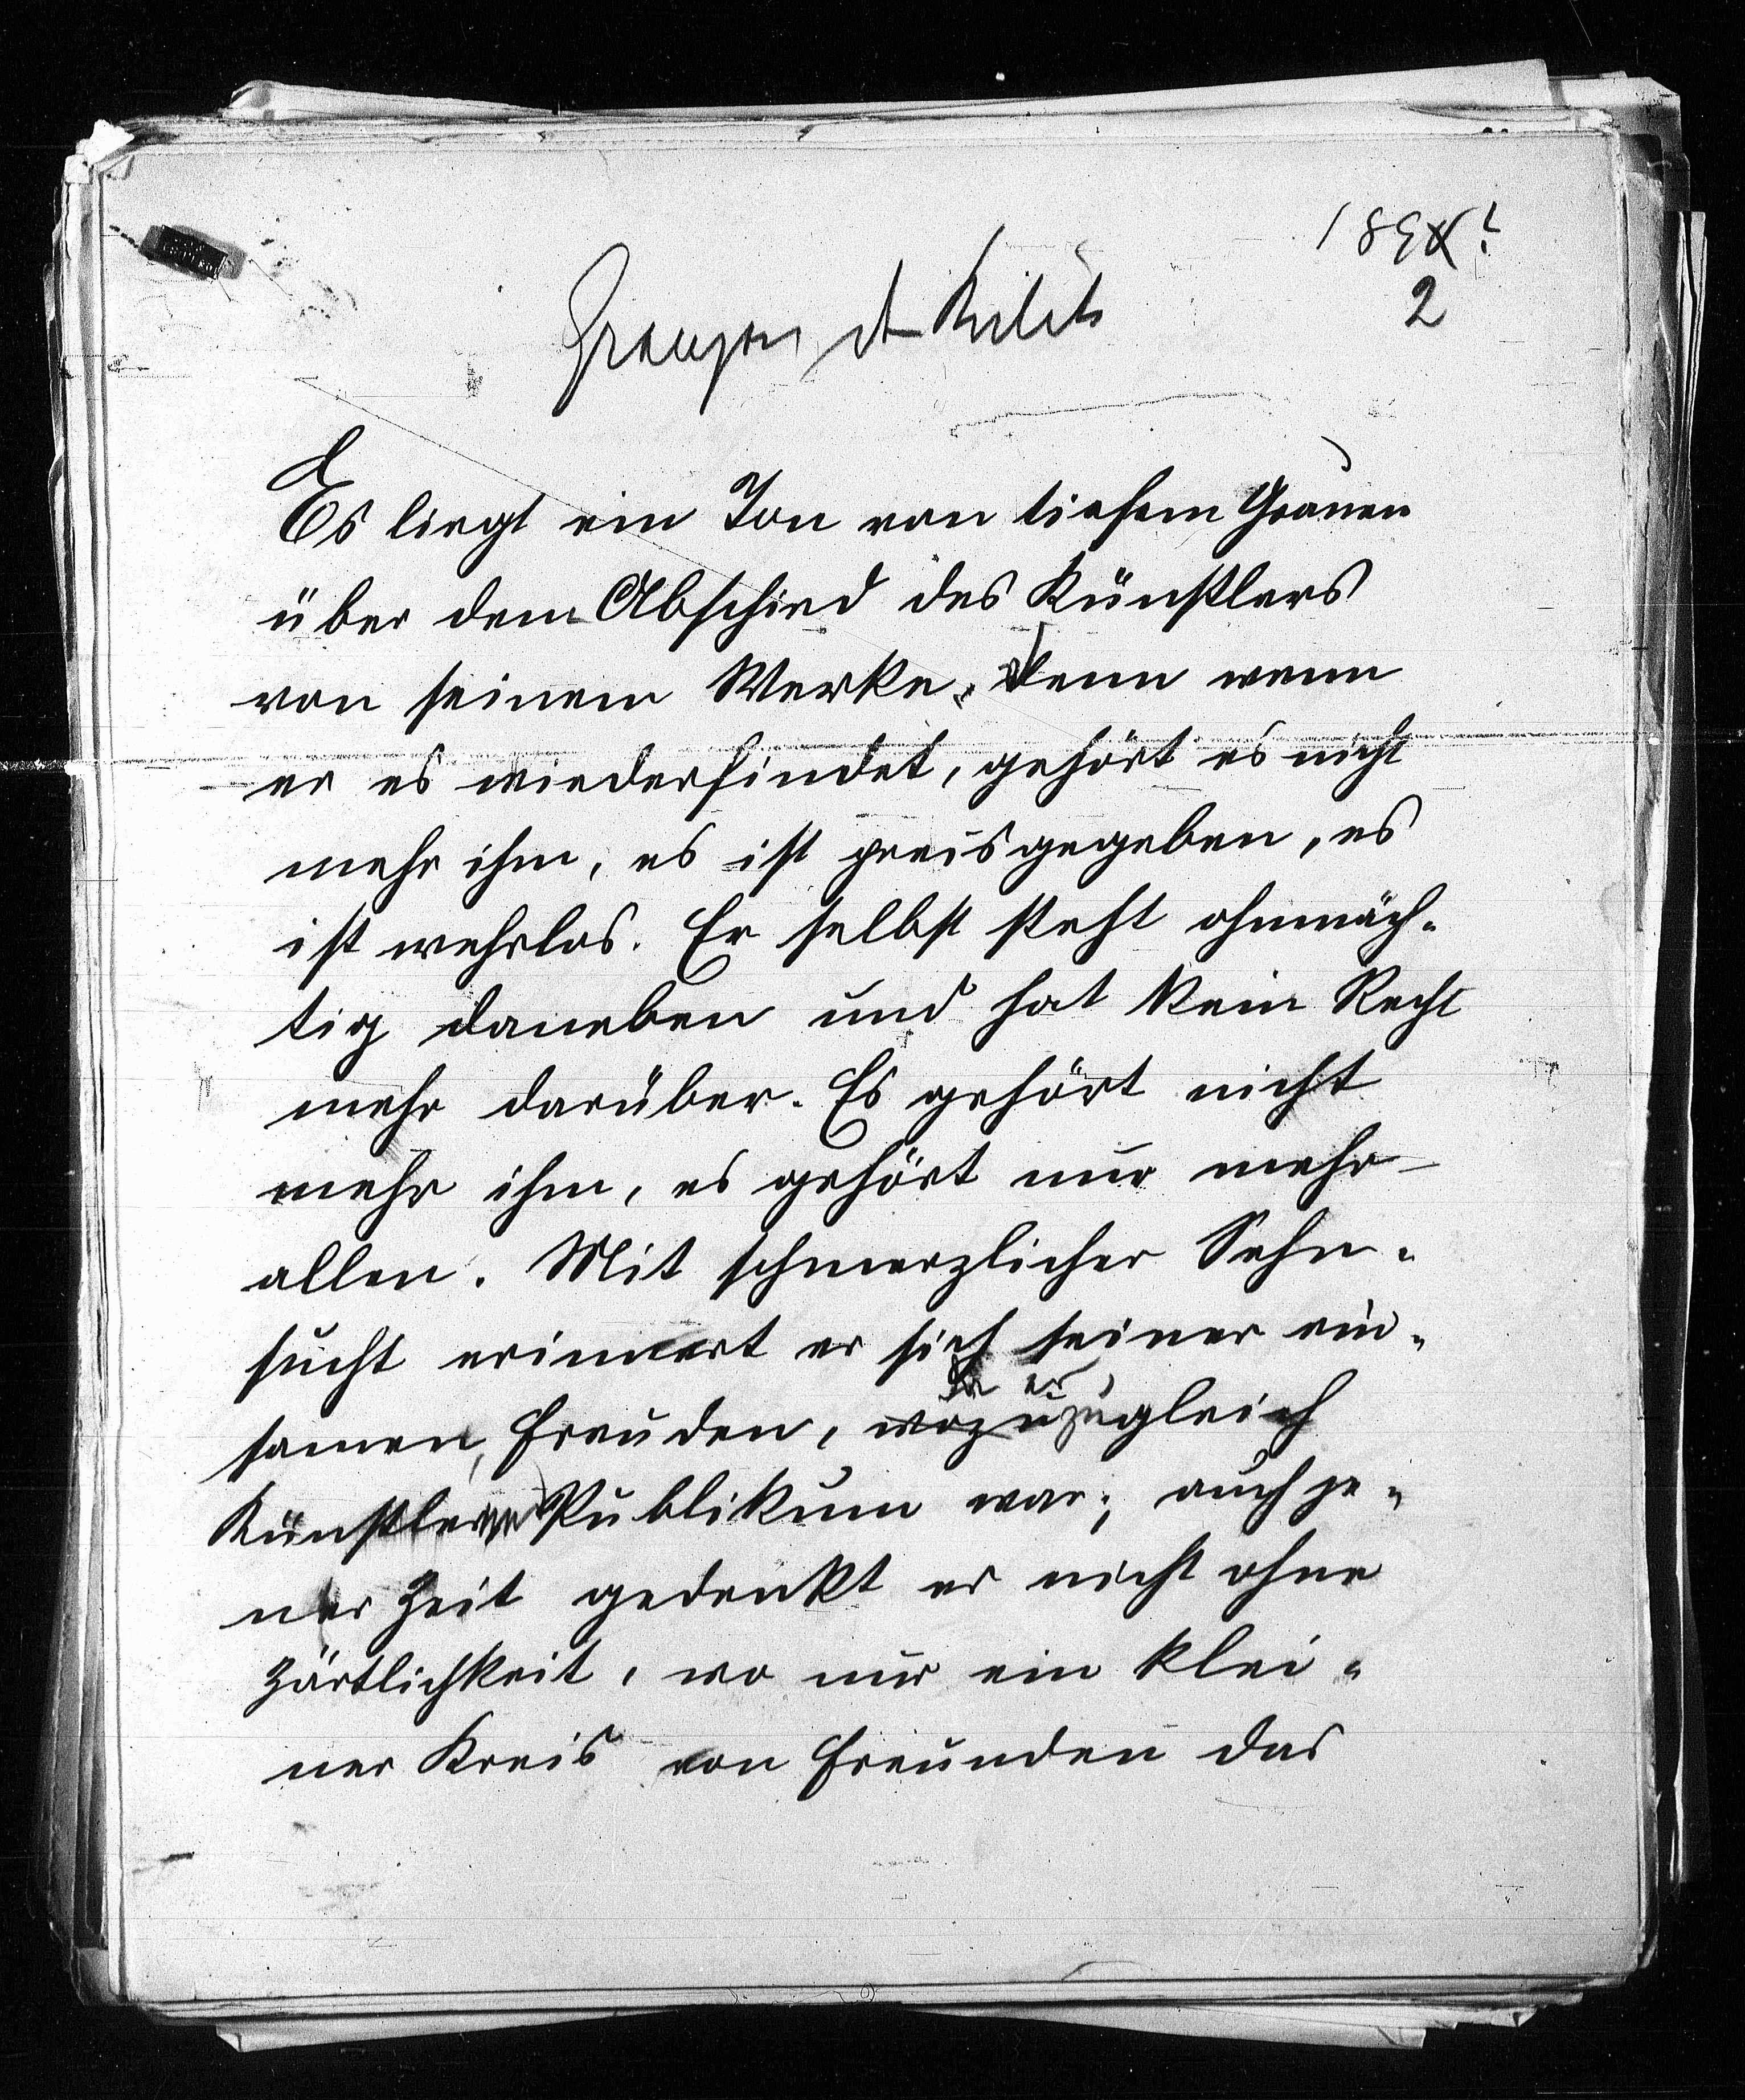 189x?
2
Grenzen der Kritik
Es liegt ein Ton von tiefem Grauen
über dem Abschied des Künstlers
von seinem Werke. Denn wenn
er es wiederfindet, gehört es nicht
mehr ihm, es ist preisgegeben, es
ist wehrlos. Er selbst steht ohnmäch-
tig daneben und hat kein Recht
mehr darüber. Es gehört nicht
mehr ihm, es gehört nur mehr
allen. Mit schmerzlicher Sehn-
sucht erinnert er sich seiner ein-
samen Freuden, da er zugleich
Künstler und Publikum war; auch je-
ner Zeit gedenkt er nicht ohne
Zärtlichkeit, wo nur ein klei-
ner Kreis von Freunden das